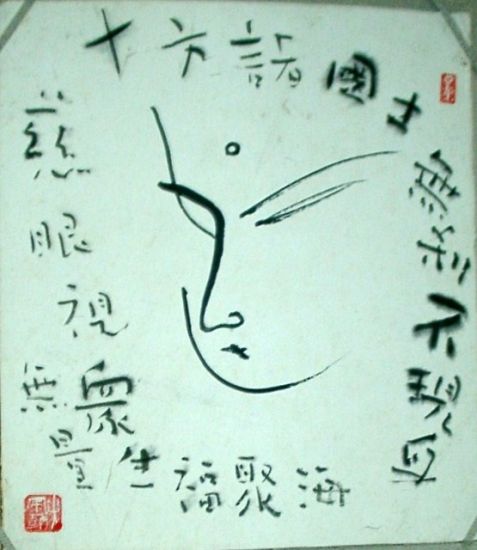 十方諸國土
無刹不現身
慈眼視衆生
福聚海無量